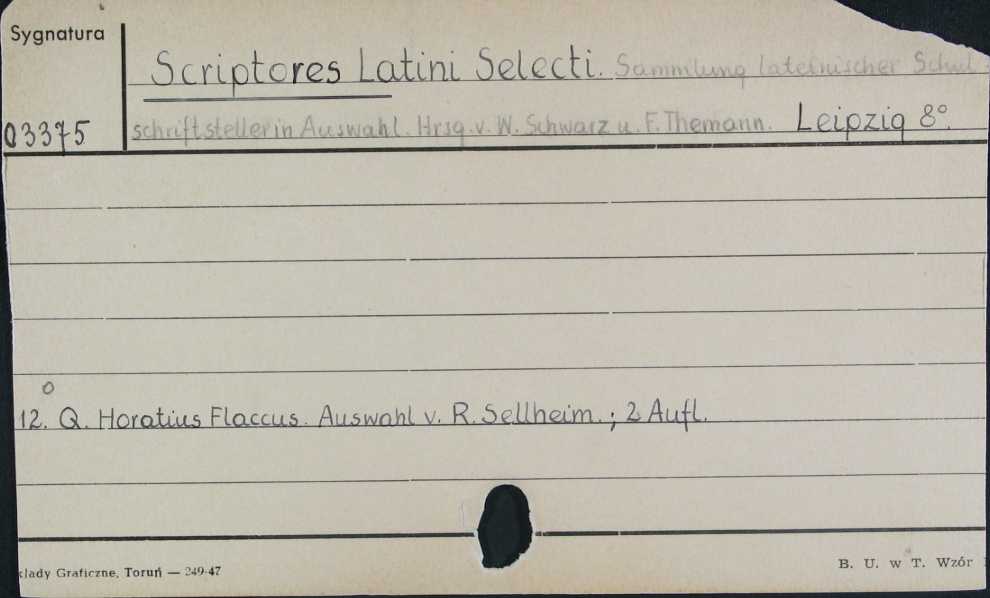 Sygnatura
Scriptores Latini Selecti. Sammlung lateinischer Schul-
03375
schriftsteller in Auswahl. Hrsg. v. W. Schwarz u. F. Themann. Leipzig 8°.
o
12. Q. Horatius Flaccus. Auswahl v. R. Sellheim.; 2 Aufl.
kłady Graficzne, Toruń — 249-47
B. U. w T. Wzór